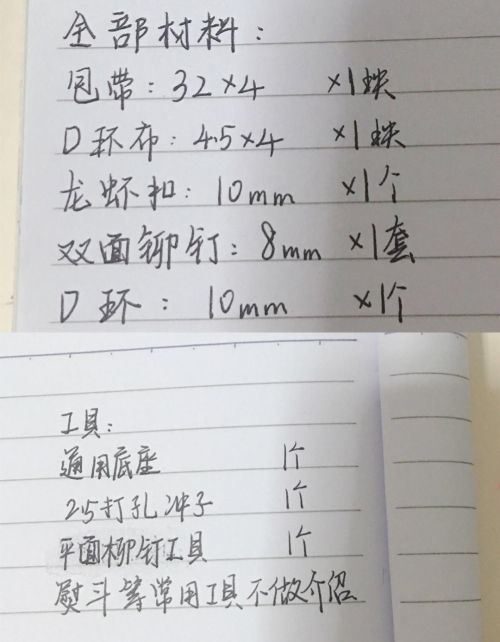 全部材料:
包带: 32×4 ×1块
D环布: 4.5×4 ×1块
龙虾扣: 10mm ×1个
双面铆钉: 8mm ×1套
D环: 10mm ×1个
工具:
通用底座 1个
2.5打孔冲子 1个
平面柳钉工具 1个
熨斗等常用工具不做介绍